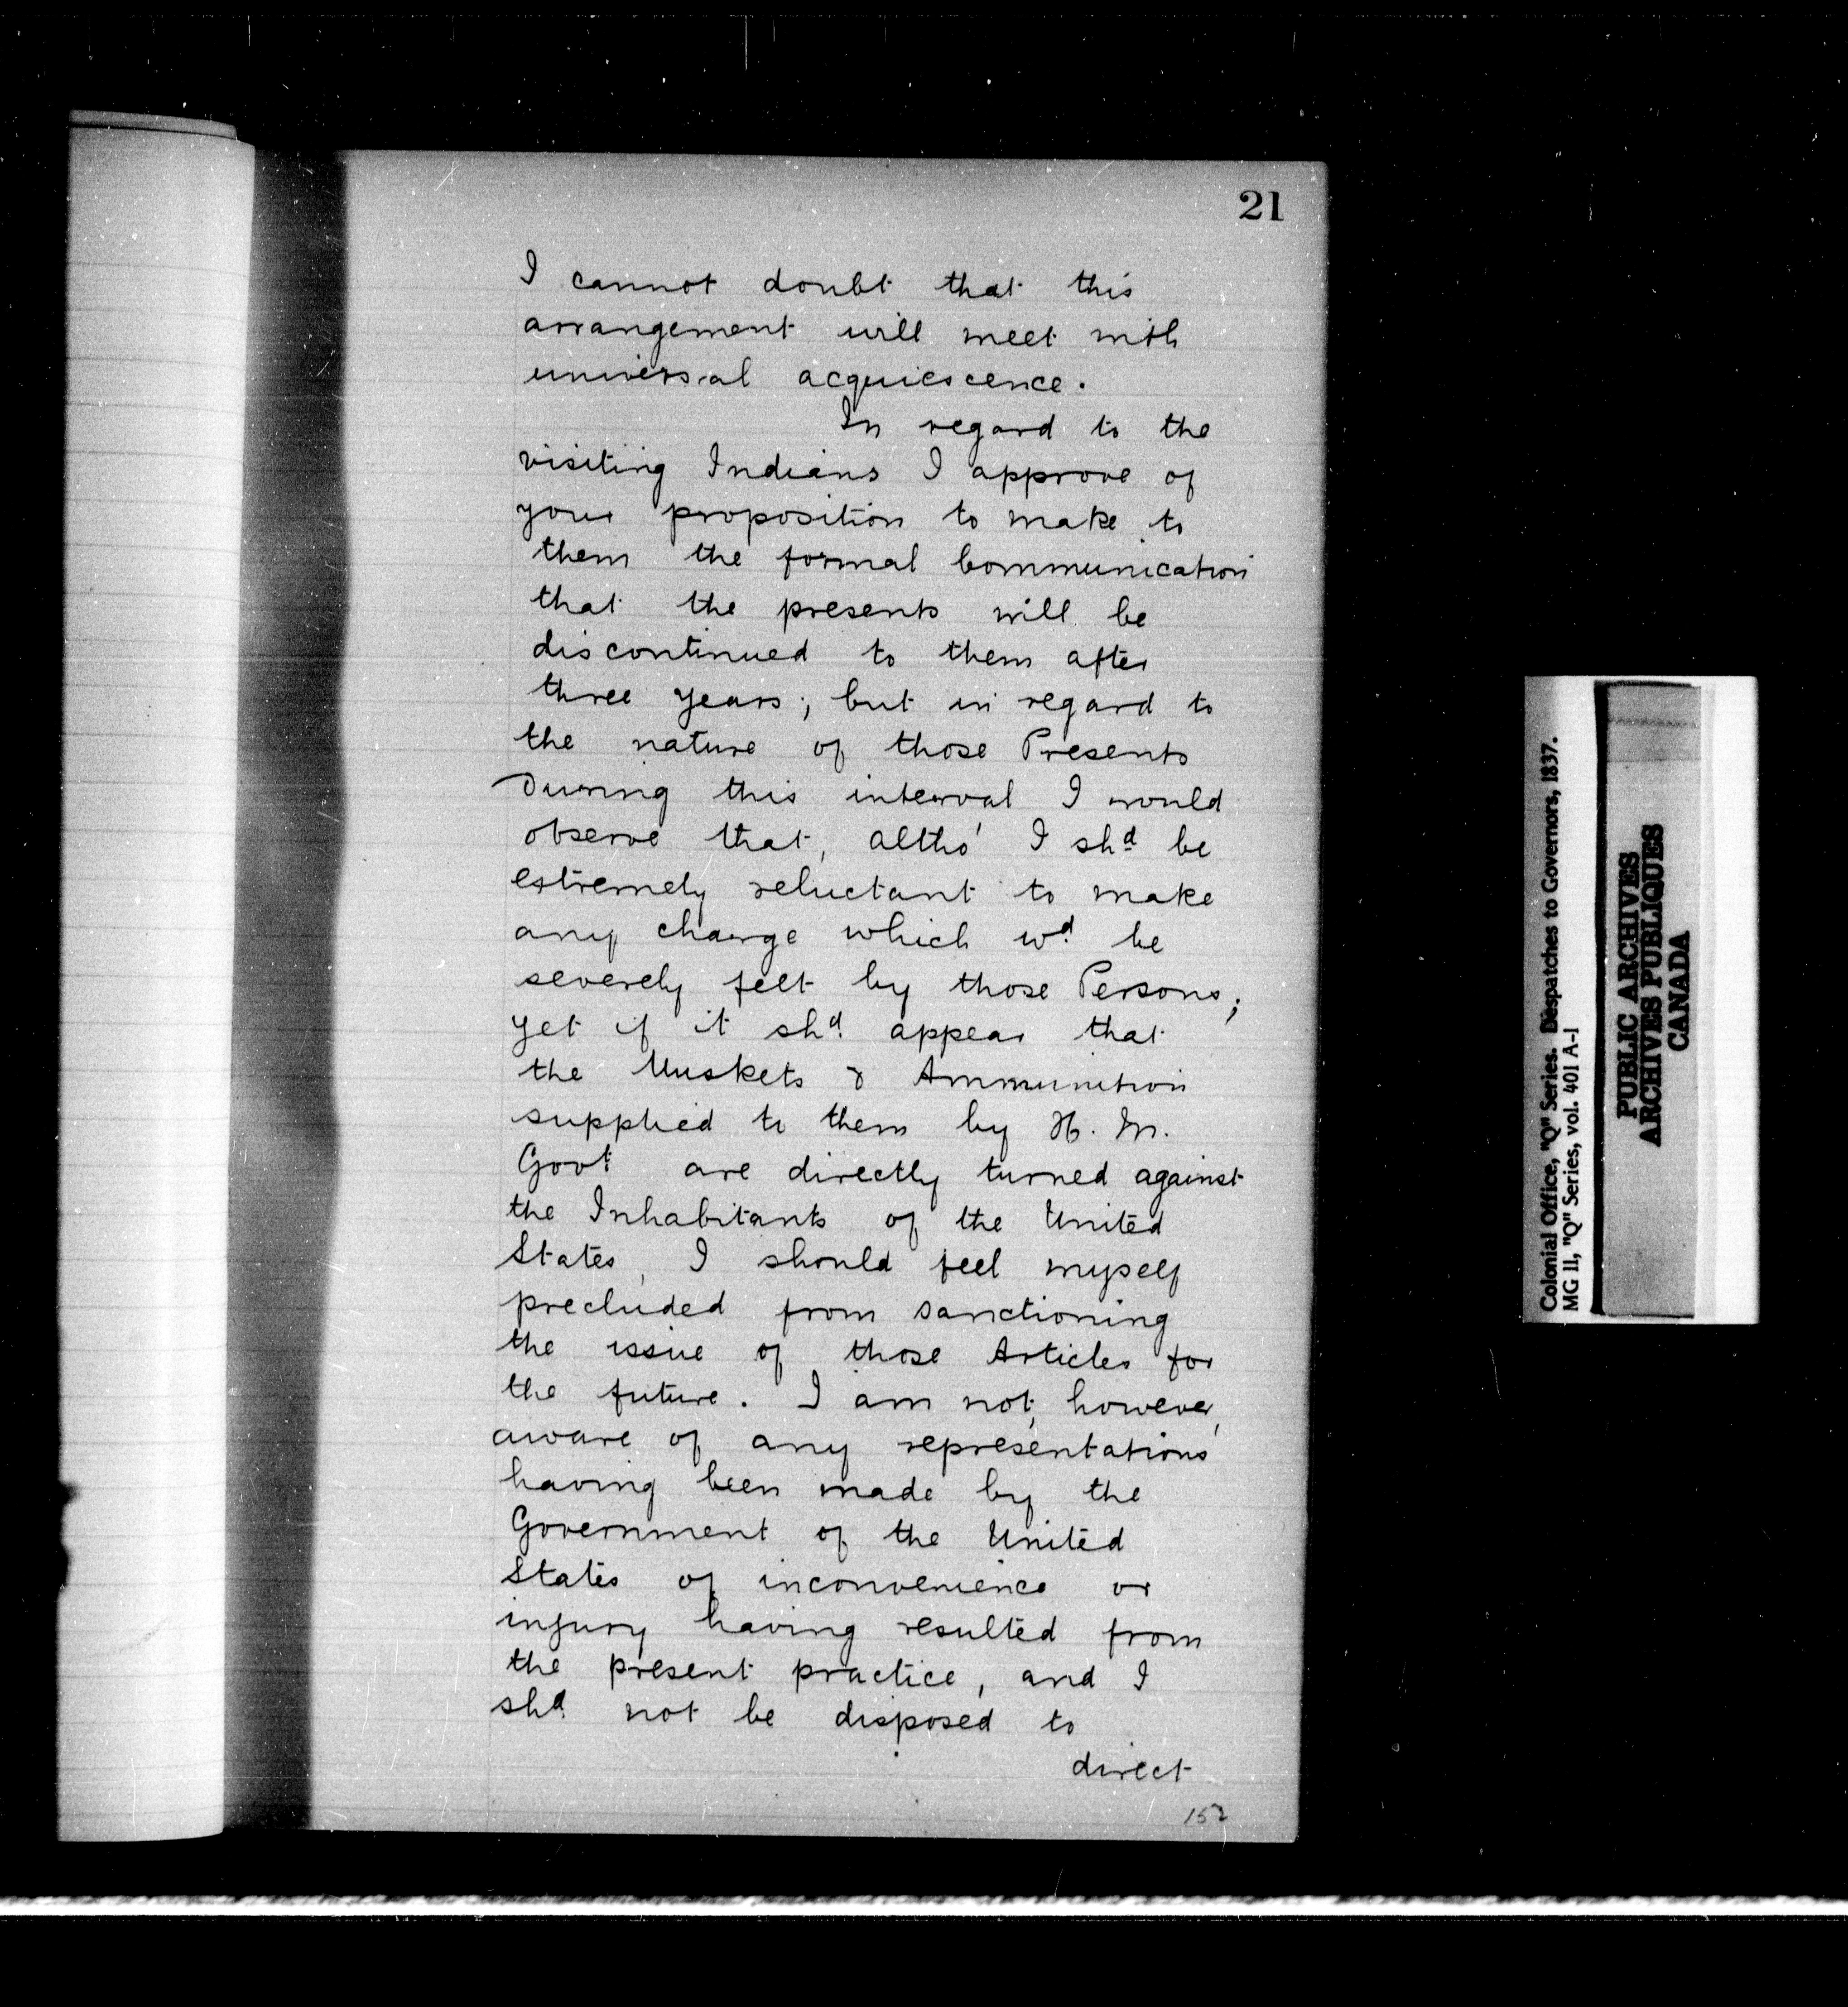 21
I cannot doubt that this
arrangement will meet with
universal acquiescence.
In regard to the
visiting Indians I approve of
your proposition to make to
them the formal Communication
that the presents will be
discontinued to them after
three years; but in regard to
the nature of those Presents
During this interval I would
observe that, altho' I shd be
extremely reluctant to make
any change which wd be
severely felt by those Persons;
yet if it shd appear that
the Muskets & Ammunition
supplied to them by H. M.
Govt are directly turned against
the Inhabitants of the United
States, I should feel myself
precluded from sanctioning
the issue of those Articles for
the future. I am not, however,
aware of any representations
having been made by the
Government of the United
States of inconvenience or
injury having resulted from
the present practice, and I
shd not be disposed to
direct
152
Colonial Office, "Q" Series. Despatches to Governors, 1837.
MG 11, "Q" Series, vol. 401 A-1
PUBLIC ARCHIVES
ARCHIVES PUBLIQUES
CANADA